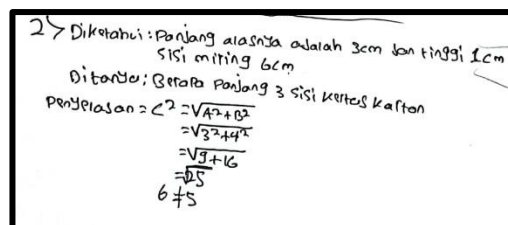 2) Diketahui : Panjang alasnya adalah 3cm dan tinggi 1cm
sisi miring 6cm
Ditanya : Berapa Panjang 3 sisi kertas karton
Penyelasan = C² = √A²+B²
= √3²+4²
= √9+16
= √25
6 ≠ 5